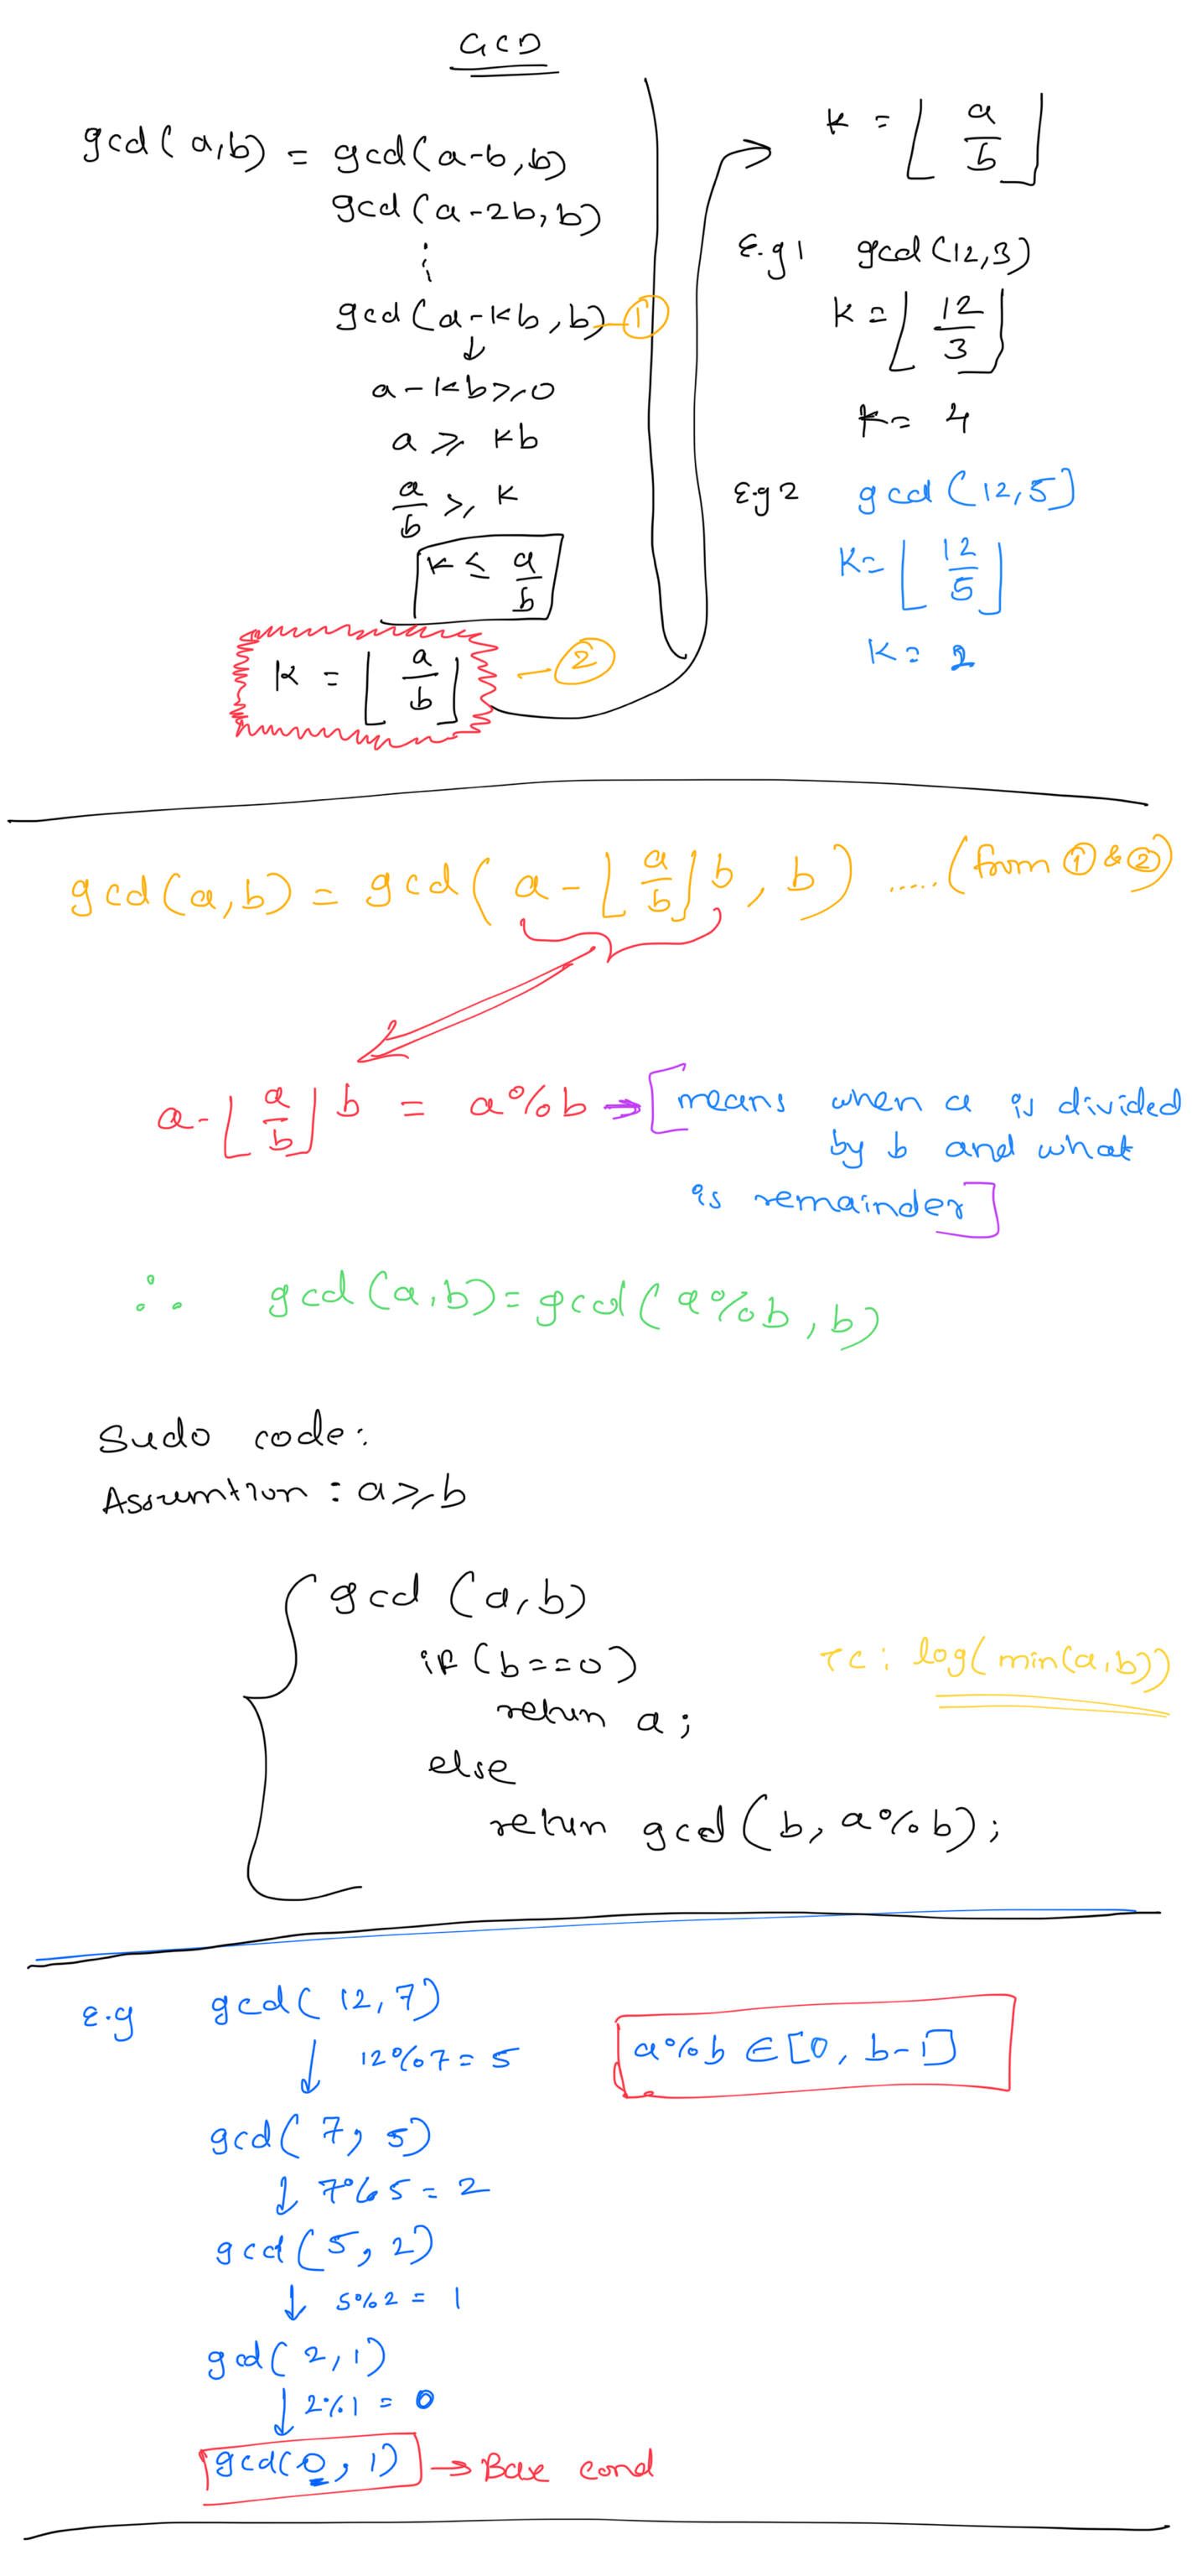 GCD
gcd(a,b) = gcd(a-b,b)
gcd(a-2b,b)
⋮
gcd(a-kb,b) - ①
↓
a-kb≥0
a ≥ kb
a/b ≥ k
k ≤ a/b
k = ⌊a/b⌋ - ②
k = ⌊a/b⌋
E.g1 gcd(12,3)
k = ⌊12/3⌋
k = 4
E.g2 gcd(12,5)
k = ⌊12/5⌋
k = 2
gcd(a,b) = gcd(a-⌊a/b⌋b, b) .....(from ① & ②)
a-⌊a/b⌋b = a%b → [means when a is divided
by b and what
is remainder]
∴ gcd(a,b)=gcd(a%b,b)
Sudo code:
Assumtion : a≥b
gcd (a,b)
if(b==0)
return a;
else
return gcd(b, a%b);
TC: log(min(a,b))
E.g gcd(12,7)
↓ 12%7 = 5
a%b ∈ [0, b-1]
gcd(7, 5)
↓ 7%5 = 2
gcd(5, 2)
↓ 5%2 = 1
gcd(2,1)
↓ 2%1 = 0
gcd(0, 1) → Base cond